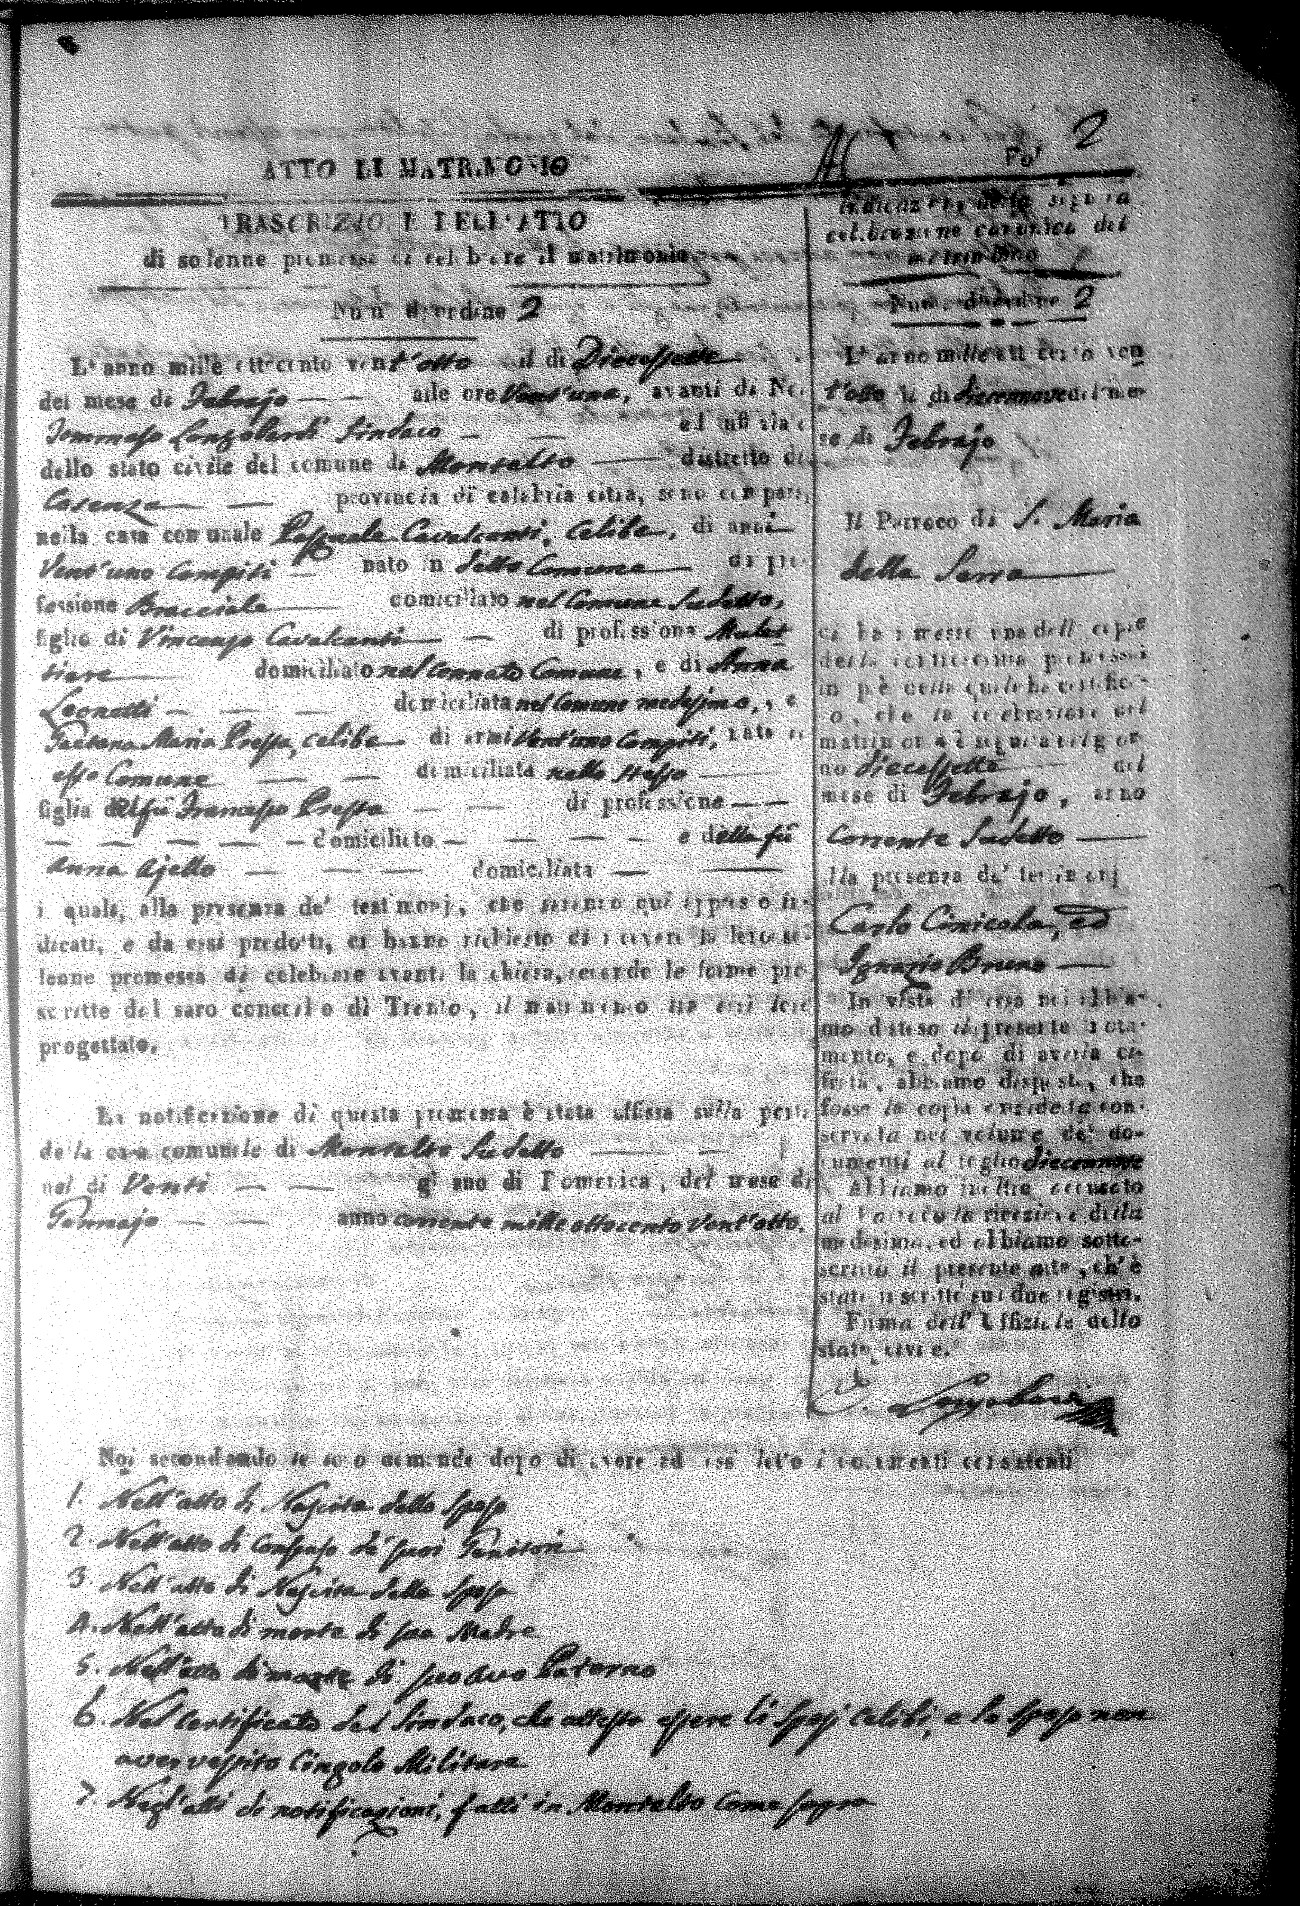 2
ATTO DI MATRIMONIO
TRASCRIZIONE DELL'ATTO
di solenne promessa di celebrare il matrimonio
Num. d'ordine 2
L'anno mille ottocento vent'otto il di Diecessette
del mese di Febrajo alle ore Vent'una, avanti di Noi
Tommaso Longobardi Sindaco ed uffiziale
dello stato civile del comune di Montalto distretto di
Cosenza provincia di calabria citra, sono comparsi
nella casa comunale Pasquale Cavalcanti, Celibe, di anni
Vent'uno Compiti nato in detto Comune di pro-
fessione Bracciale domiciliato nel Comune Sudetto,
figlio di Vincenzo Cavalcanti di professione Mulat
tiere domiciliato nel cennato Comune, e di Anna
Leonetti domiciliata nel Comune medesimo, e
Gaetana Maria Presta, celibe di anni Vent'uno Compiti, nata in
esso Comune domiciliata nello stesso
figlia del fu Tramasso Presta di professione
domiciliato e della fu
Anna Ajello domiciliata
i quali, alla presenza de' testimonj, che saranno qui appresso in-
dicati, e da essi prodotti, ci hanno richiesto di ricevere la loro so-
lenne promessa di celebrare avanti la chiesa, secondo le forme pre-
scritte dal sacro concilio di Trento, il matrimonio tra essi loro
progettato.
La notificazione di questa promessa è stata affissa sulla porta
della casa comunale di Montalto Sudetto
nel di Venti giorno di Domenica, del mese di
Gennajo anno corrente mille ottocento Vent'otto.
Indicazione della seguita
celebrazione canonica del
matrimonio
Num. d'ordine 2
L'anno mille ottocento ven
t'otto il di diecennove del me-
se di Febrajo
Il Parroco di S. Maria
della Serra
ci ha rimesso una delle copie
della solenne promessa
in piè della quale ha certifica-
to, che la celebrazione del
matrimonio è seguita nel gior-
no diecessette del
mese di Febrajo, anno
Corrente Sudetto
Alla presenza de' testimonj
Carlo Cinicola, ed
Ignazio Bruno
In vista di essa noi abbia-
mo disteso il presente nota-
mento, e dopo di averla ci-
frata, abbiamo disposto, che
fosse la copia anzidetta con-
servata nel volume de' do-
cumenti al foglio diecennove
Abbiamo inoltre accusato
al Parroco la ricezione della
medesima, ed abbiamo sotto-
scritto il presente atto, ch'è
stato inscritto sui due registri.
Firma dell'Uffiziale dello
stato civile.
Longobardi
Noi secondando le loro domande dopo di avere ad essi letto i documenti consistenti
1. Nell'atto di Nascita dello Sposo
2. Nell'atto di Consenso de' suoi Genitori
3. Nell'atto di Nascita della Sposa
4. Nell'atto di morte di sua Madre
5. Nell'atto di morte di suo Avo Paterno
6. Nel Certificato del Sindaco, che attesta essere li Sposi Celibi, e lo Sposo non
aver vestito Cingolo Militare
7. Negl'atti di notificazioni, fatti in Montalto Come sopra